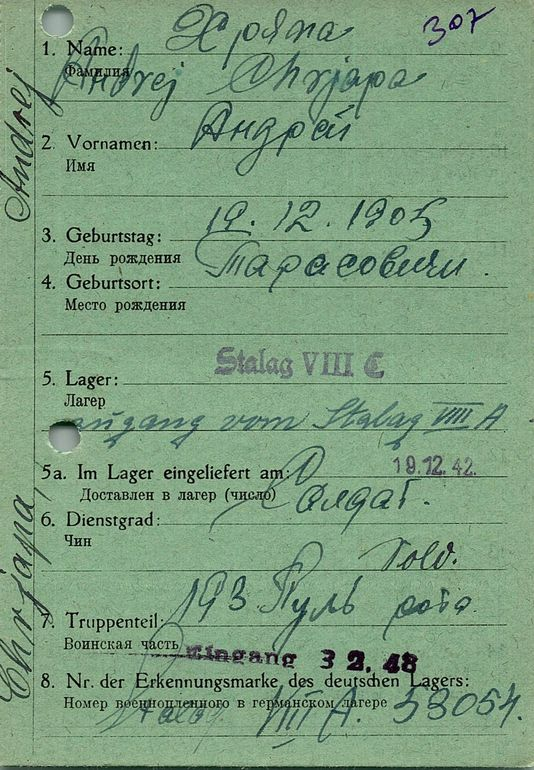 307
Хряпа
1. Name:
Фамилия
Andrej Chrjapa
Андрей
2. Vornamen:
Имя
19. 12. 1905
3. Geburtstag:
День рождения
Тарасовичи.
4. Geburtsort:
Место рождения
Stalag VIII C
5. Lager:
Лагер
zugang vom Stalag VIII A
5a. Im Lager eingeliefert am:
19.12.42.
Доставлен в лагер (число)
Солдат.
6. Dienstgrad:
Чин
Sold.
193 Пуль рота
7. Truppenteil:
Воинская часть
Eingang 3 2. 43
8. Nr. der Erkennungsmarke des deutschen Lagers:
Номер военнопленного в германском лагере
Stalag VIII A. 53054.
Chrjapa, Andrej